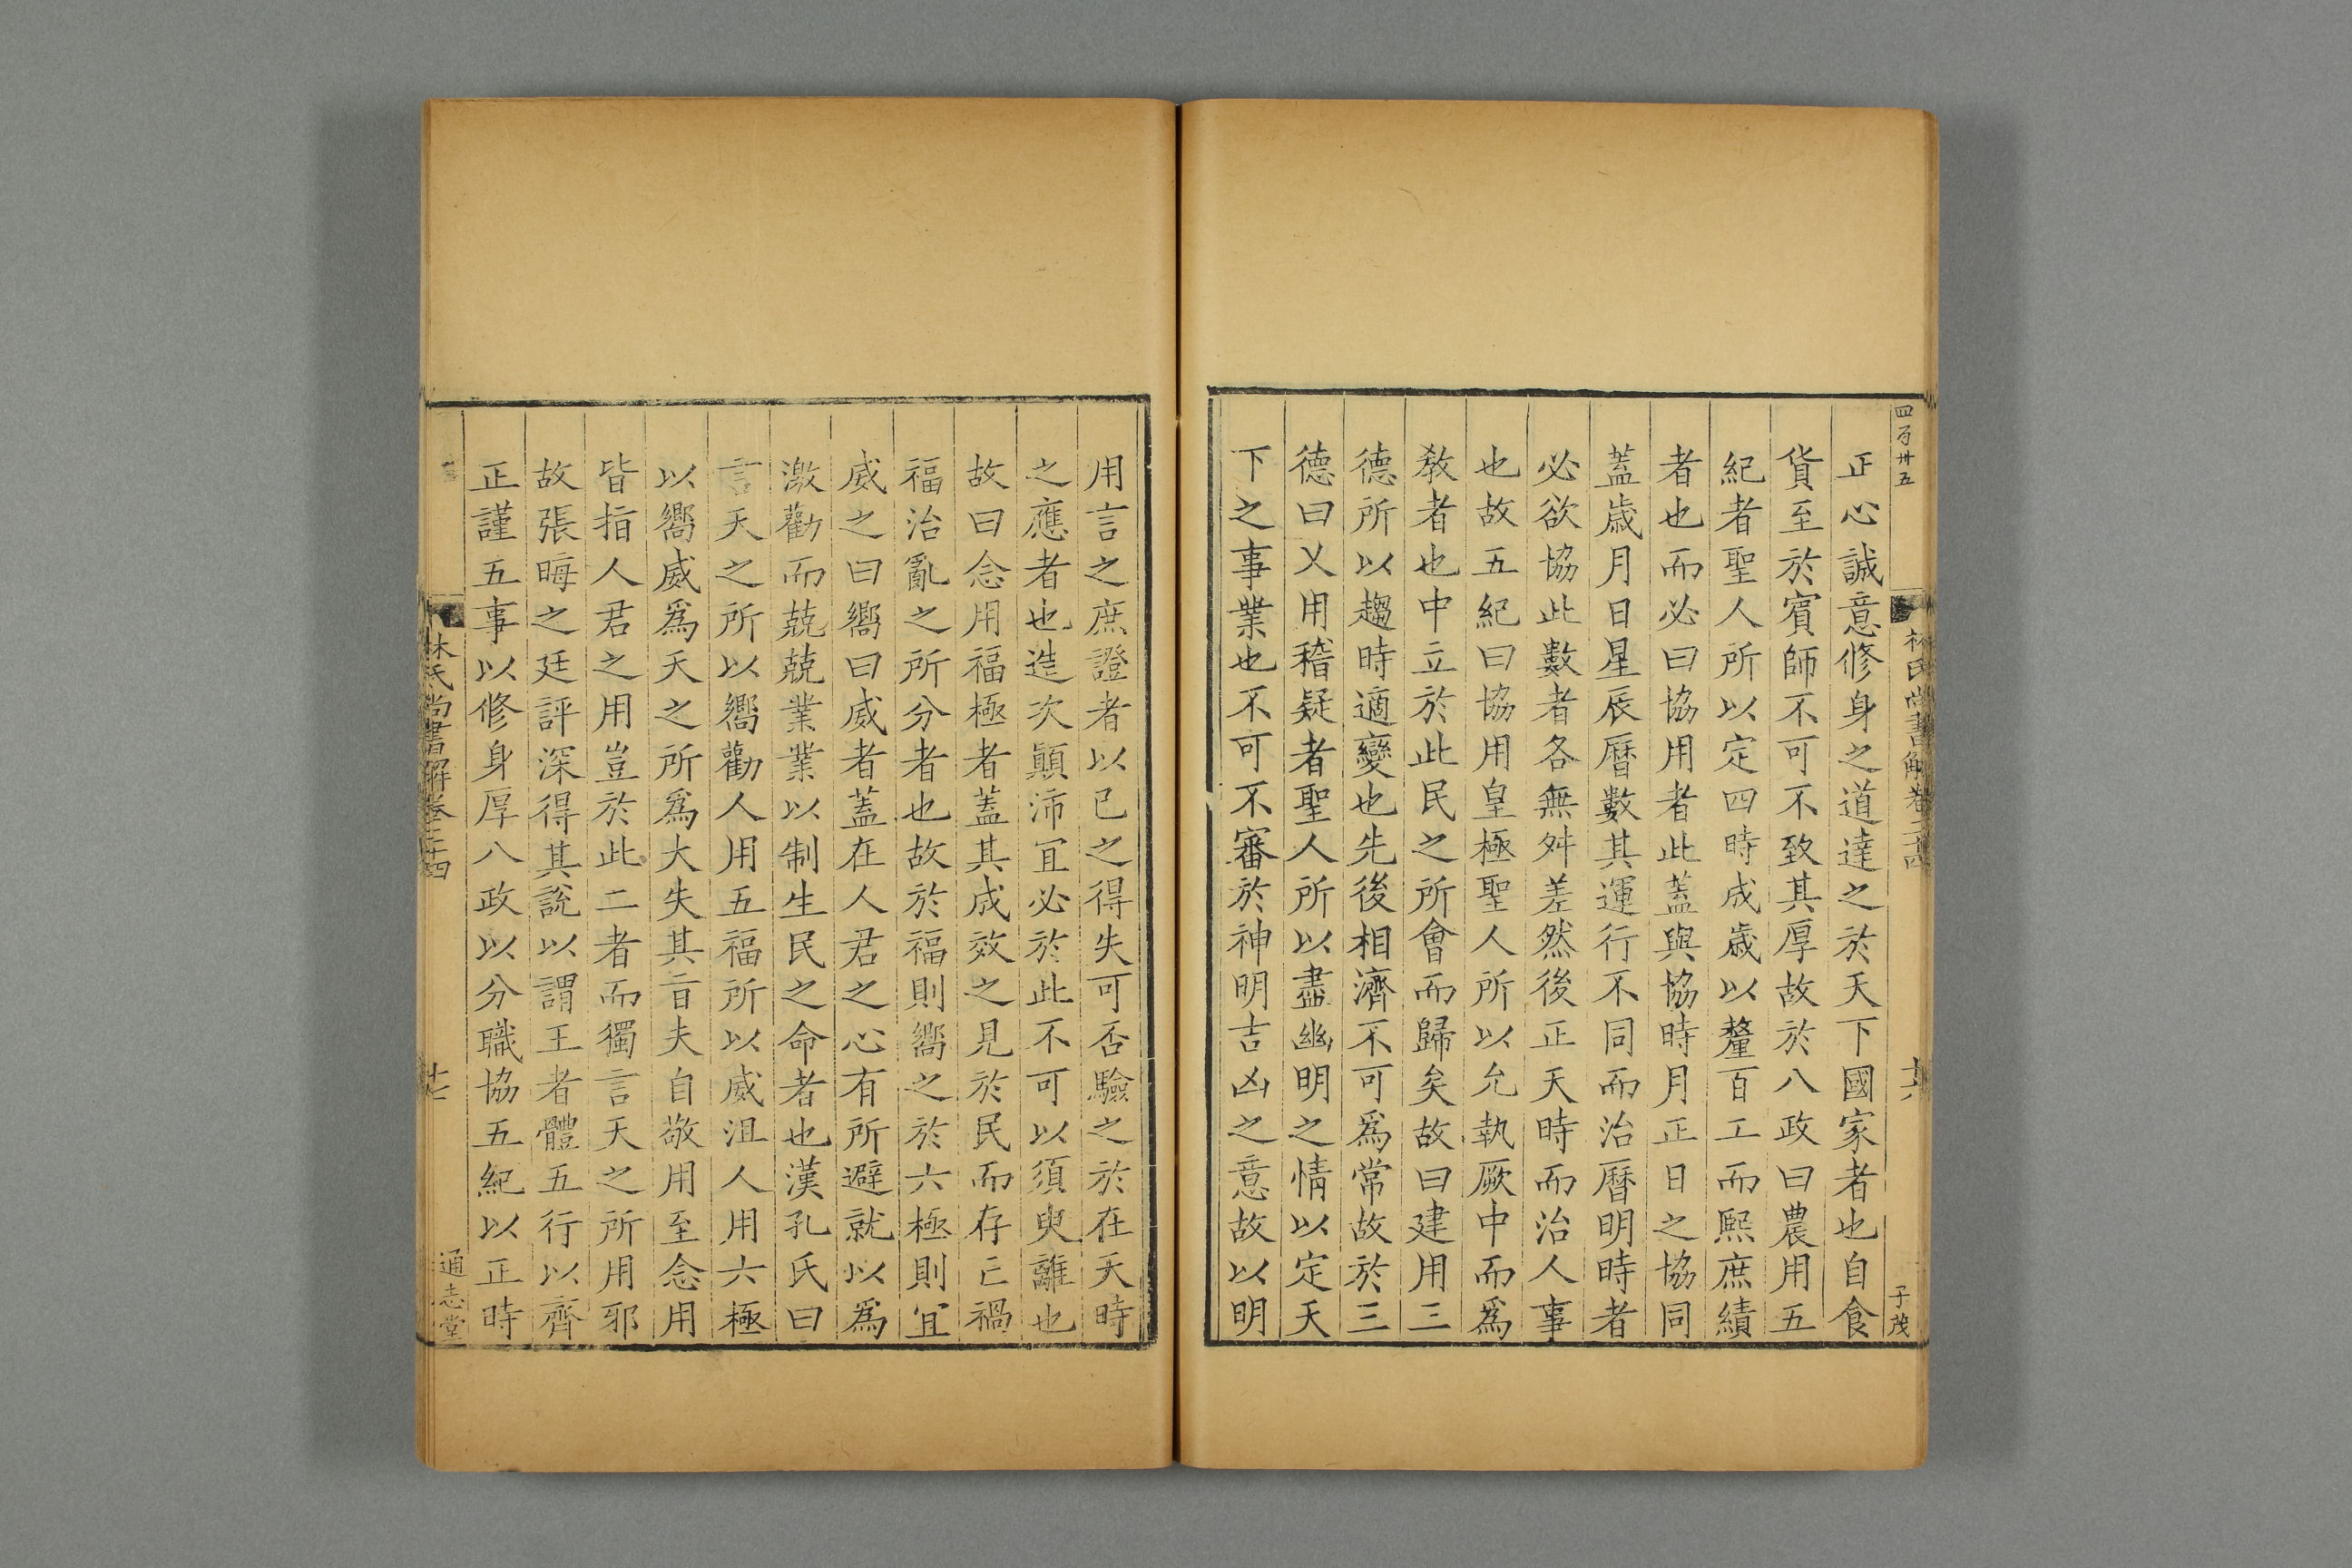 四百卅五
林氏尚書解卷二十四
十六
子茂
正心誠意修身之道達之於天下國家者也自食
貨至於賓師不可不致其厚故於八政曰農用五
紀者聖人所以定四時成歲以釐百工而熙庶績
者也而必曰協用者此蓋與協時月正日之協同
蓋歲月日星辰曆數其運行不同而治曆明時者
必欲協此數者各無舛差然後正天時而治人事
也故五紀曰協用皇極聖人所以允執厥中而爲
敎者也中立於此民之所會而歸矣故曰建用三
德所以趨時適變也先後相濟不可爲常故於三
德曰乂用稽疑者聖人所以盡幽明之情以定天
下之事業也不可不審於神明吉凶之意故以明
用言之庶證者以已之得失可否驗之於在天時
之應者也造次顚沛宜必於此不可以須臾離也
故曰念用福極者蓋其成效之見於民而存亡禍
福治亂之所分者也故於福則嚮之於六極則宜
威之曰嚮曰威者蓋在人君之心有所避就以爲
激勸而兢兢業業以制生民之命者也漢孔氏曰
言天之所以嚮勸人用五福所以威沮人用六極
以嚮威爲天之所爲大失其旨夫自敬用至念用
皆指人君之用豈於此二者而獨言天之所用邪
故張晦之廷評深得其說以謂王者體五行以齊
正謹五事以修身厚八政以分職協五紀以正時
林氏尚書解卷二十四
十七
通志堂